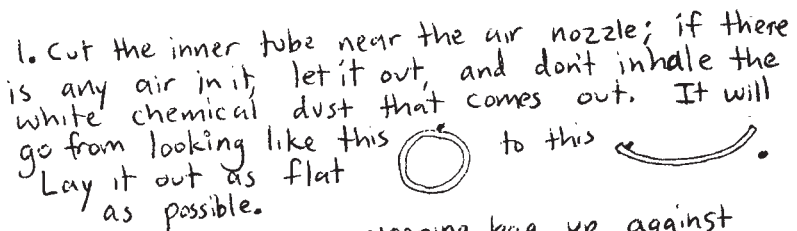 1. Cut the inner tube near the air nozzle; if there
is any air in it, let it out, and don't inhale the
white chemical dust that comes out. It will
go from looking like this to this .
Lay it out as flat
as possible.
bag up against